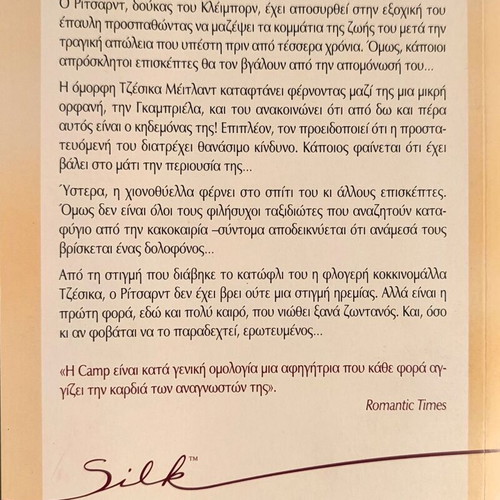 Ο Ρίτσαρντ, δούκας του Κλέιμπορν, έχει αποσυρθεί στην εξοχική του
έπαυλη προσπαθώντας να μαζέψει τα κομμάτια της ζωής του μετά την
τραγική απώλεια που υπέστη πριν από τέσσερα χρόνια. Όμως, κάποιοι
απρόσκλητοι επισκέπτες θα τον βγάλουν από την απομόνωσή του...
Η όμορφη Τζέσικα Μέιτλαντ καταφτάνει φέρνοντας μαζί της μια μικρή
ορφανή, την Γκαμπριέλα, και του ανακοινώνει ότι από δω και πέρα
αυτός είναι ο κηδεμόνας της! Επιπλέον, τον προειδοποιεί ότι η προστα-
τευόμενή του διατρέχει θανάσιμο κίνδυνο. Κάποιος φαίνεται ότι έχει
βάλει στο μάτι την περιουσία της...
Ύστερα, η χιονοθύελλα φέρνει στο σπίτι του κι άλλους επισκέπτες.
Όμως δεν είναι όλοι τους φιλήσυχοι ταξιδιώτες που αναζητούν κατα-
φύγιο από την κακοκαιρία –σύντομα αποδεικνύεται ότι ανάμεσά τους
βρίσκεται ένας δολοφόνος...
Από τη στιγμή που διάβηκε το κατώφλι του η φλογερή κοκκινομάλλα
Τζέσικα, ο Ρίτσαρντ δεν έχει βρει ούτε μια στιγμή ηρεμίας. Αλλά είναι η
πρώτη φορά, εδώ και πολύ καιρό, που νιώθει ξανά ζωντανός. Και, όσο
κι αν φοβάται να το παραδεχτεί, ερωτευμένος...
«Η Camp είναι κατά γενική ομολογία μια αφηγήτρια που κάθε φορά αγ-
γίζει την καρδιά των αναγνωστών της».
Romantic Times
Silk™